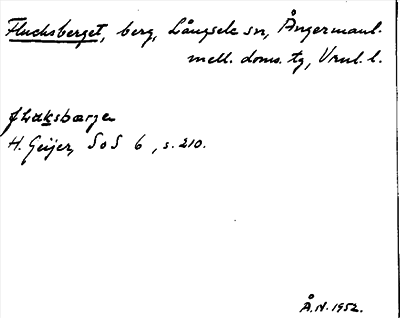 Fluchsberget, berg, Långsele sn, Ångermanl.
mell. doms. tg, Vnul. l.
flaksbärje
H. Geijer, SoS 6, s. 210.
Å.N. 1952.